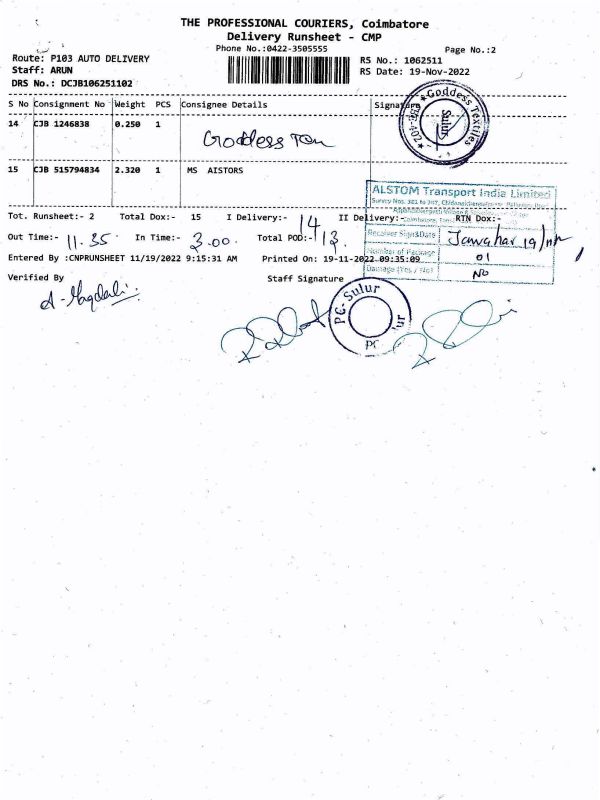 THE PROFESSIONAL COURIERS, Coimbatore
Delivery Runsheet - CMP
Phone No.:0422-3505555
Page No.:2
Route: P103 AUTO DELIVERY
RS No.: 1062511
Staff: ARUN
RS Date: 19-Nov-2022
DRS No.: DCJB106251102
S No Consignment No Weight PCS Consignee Details Signature
14 CJB 1246838 0.250 1
Goddess
Goddess Textiles
Sulur
15 CJB 515794834 2.320 1 MS AISTORS
ALSTOM Transport India Limited
Tot. Runsheet:- 2 Total Dox:- 15 I Delivery:- 14 II Delivery:- RTN Dox:-
Receiver Sign&Date Jawahar 19/
Out Time:- 11.35 In Time:- 3.00 Total POD:- 13
Number of Package 01
Entered By :CNPRUNSHEET 11/19/2022 9:15:31 AM Printed On: 19-11-2022 09:35:09
Damage (Yes / No) No
Verified By Staff Signature
PC-Sulur
PC